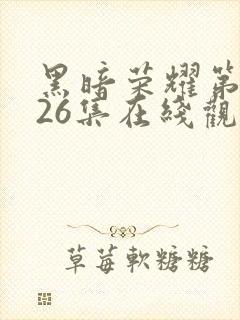 黑暗荣耀第
26集在綫觀
草莓軟糖糖